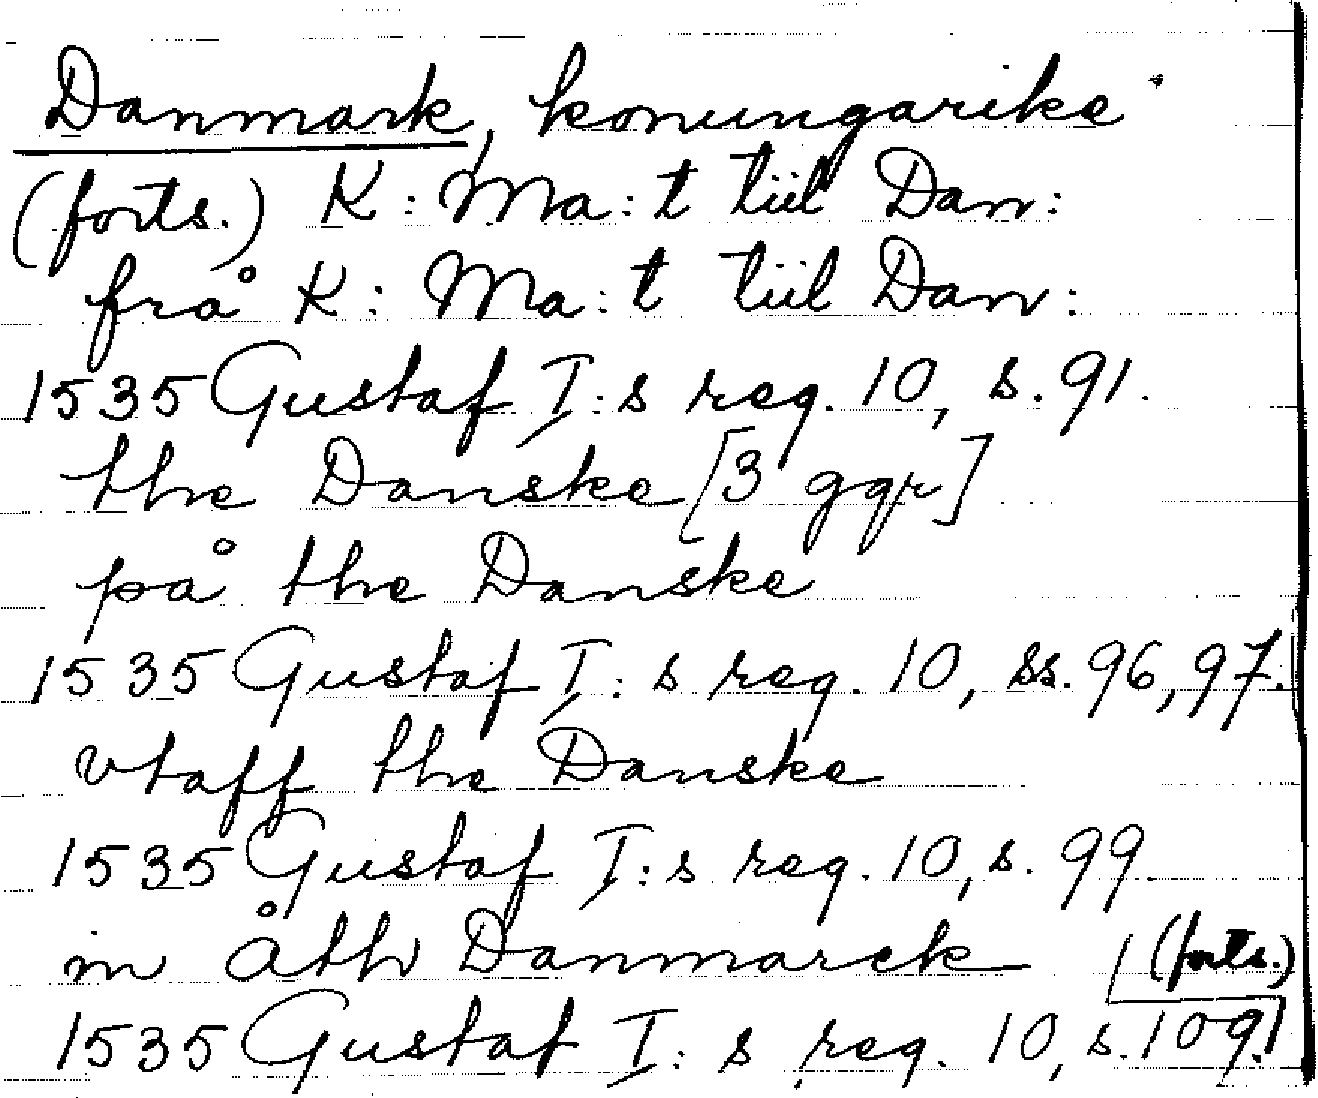 Danmark, konungarike
(forts.) K: Ma:t tiil Dan:
frå K: Ma:t tiil Dan:
1535 Gustaf I:s reg. 10, s. 91.
the Danske [3 ggr]
på the Danske
1535 Gustaf I:s reg. 10, ss. 96, 97.
vtaff the Danske
1535 Gustaf I:s reg. 10, s. 99.
in åth Danmarck
(forts.)
1535 Gustaf I:s reg. 10, s. 109.